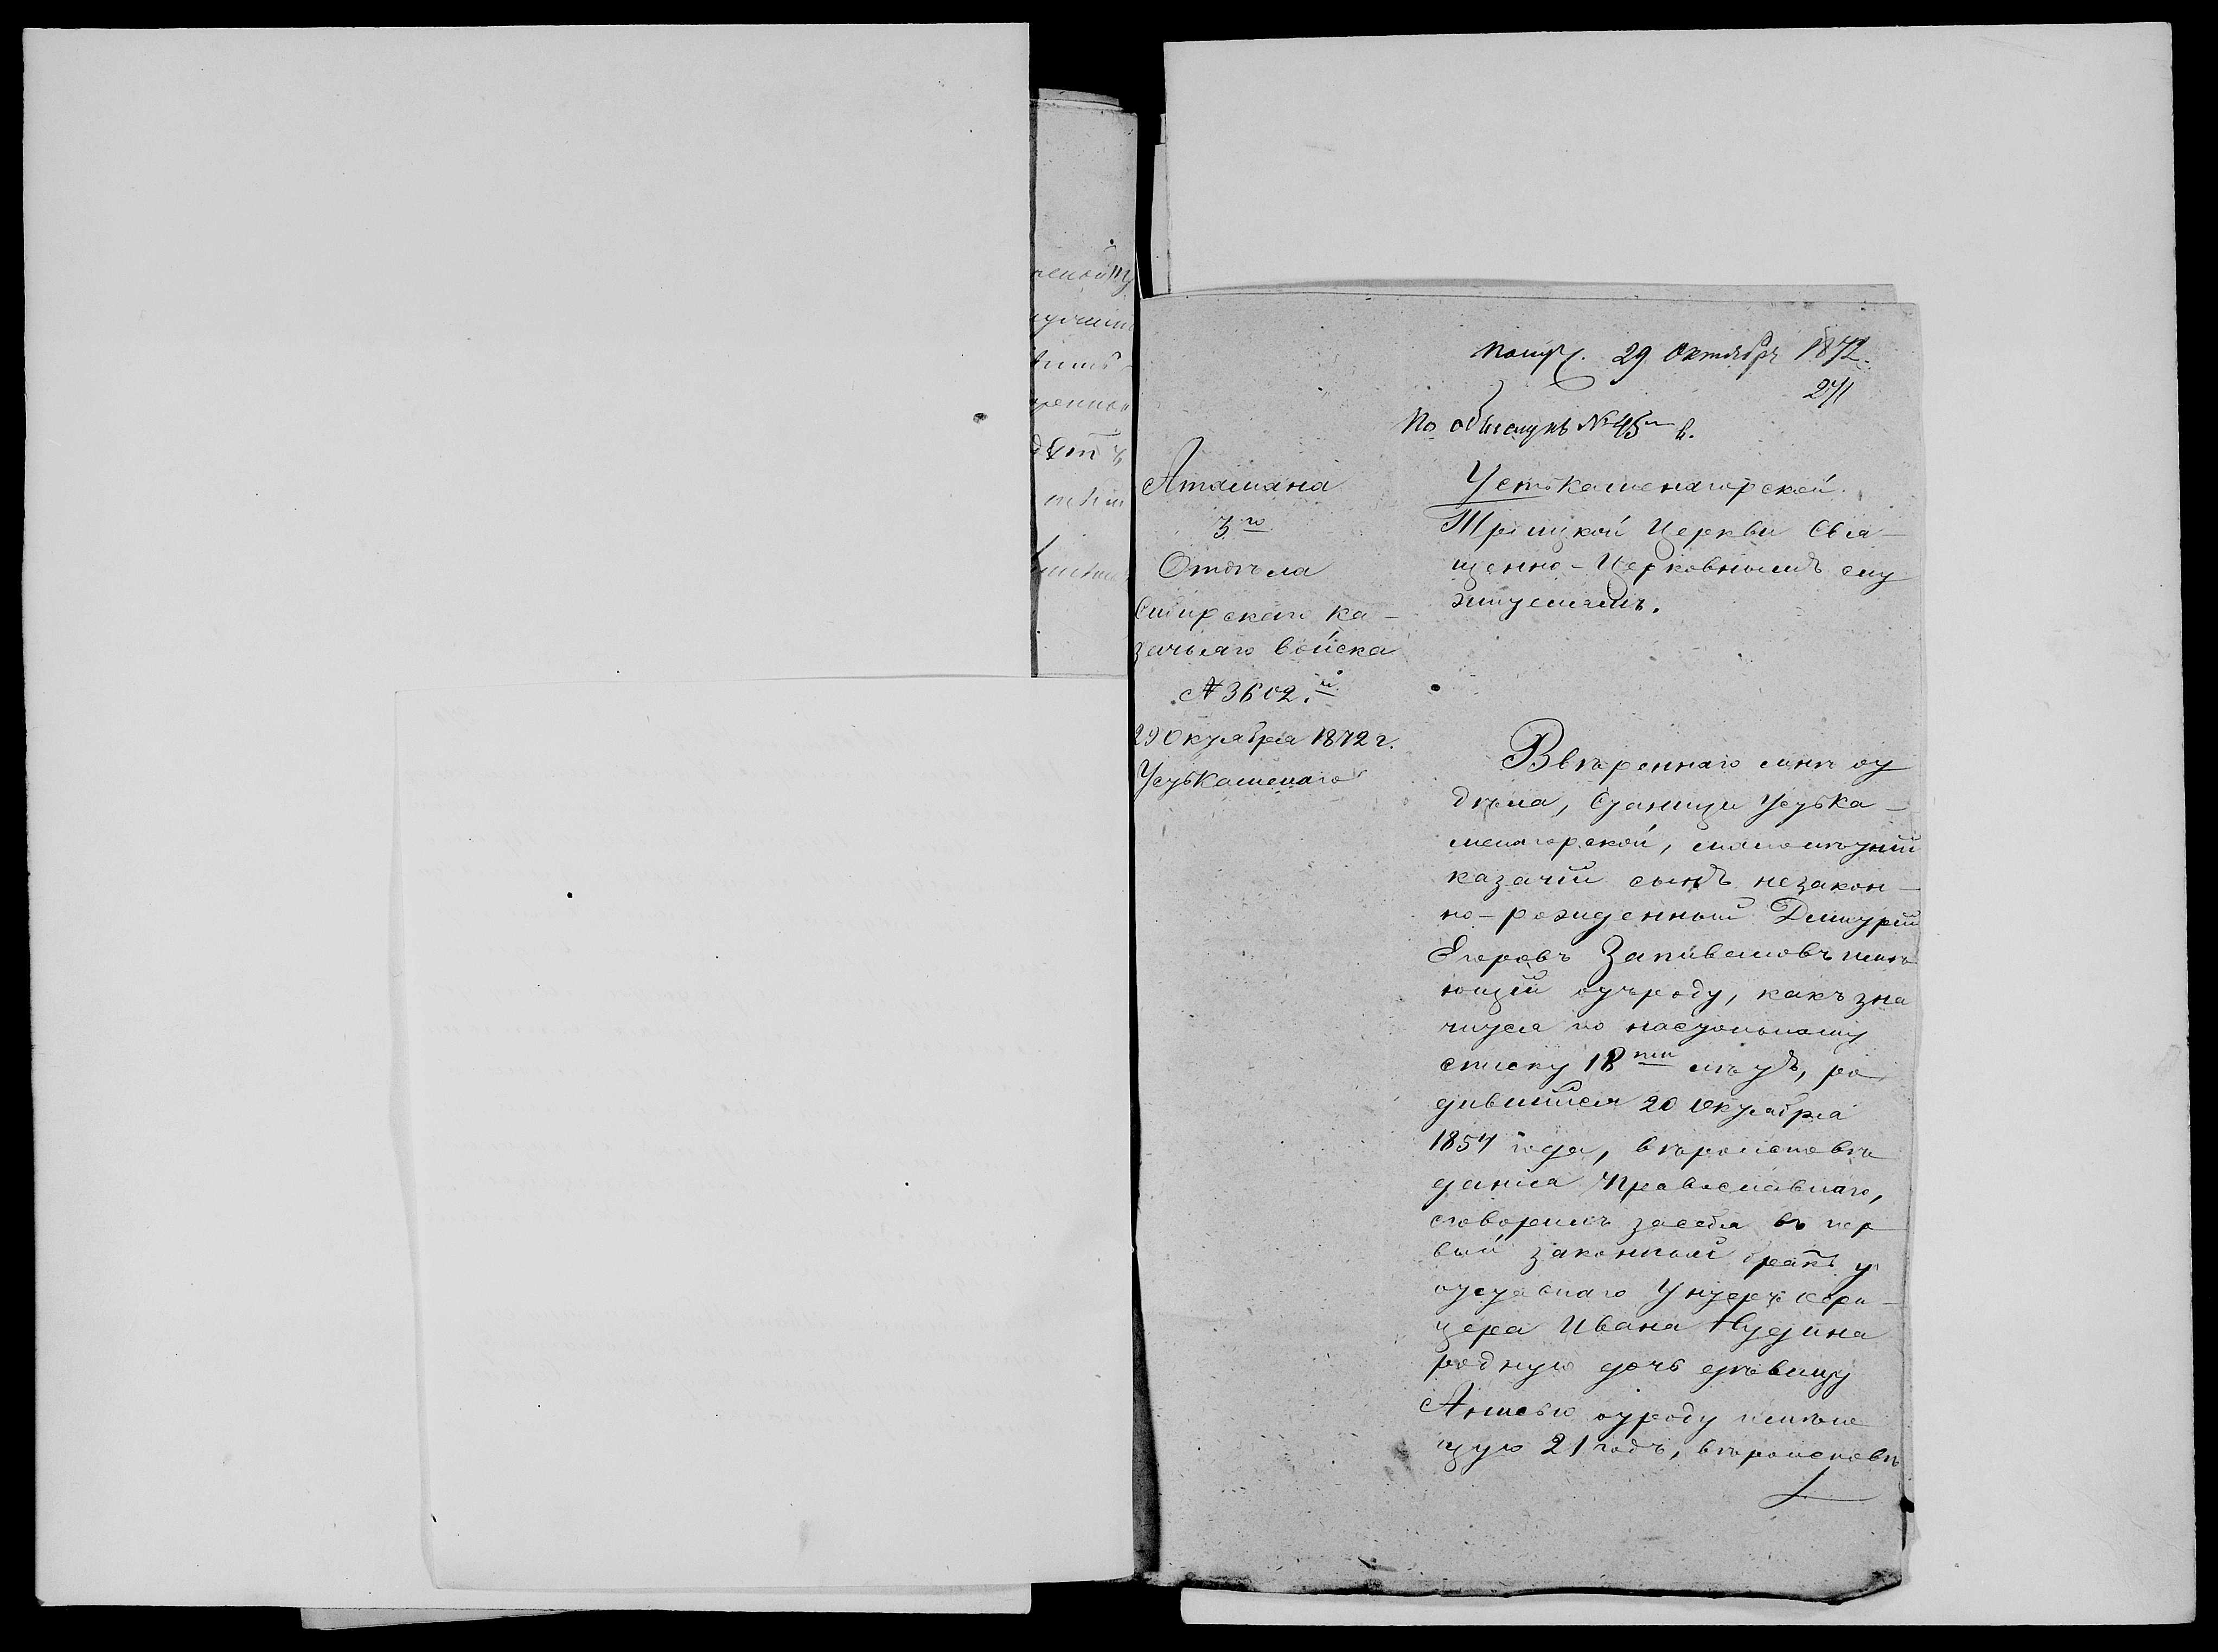 Получ. 29 Октября 1872.
271
По обыску № 45м в.
Атамана
3го
Отдѣла
Сибирскаго ка-
зачьяго войска
№ 3602.й
29 Октября 1872 г.
УстьКаменог
УстьКаменагорской
Троицкой Церкви Свя-
щенно-Церковнымъ слу
жителямъ.
Ввѣреннаго мнѣ от
дѣла, Станицы УстьКа-
менагорской, малолѣтній
казачій сынъ незакон-
но-рожденный Димитрій
Егоровъ Запиваловъ имѣ
ющій отъроду, какъ зна
чится по настольному
списку 18ть лѣтъ, ро
дившійся 20 Октября
1854 года, вѣроисповѣ
данія Православнаго,
сговорилъ засебя въ пер
вый законный бракъ у
отставнаго Унтеръ офи-
цера Ивана
родную дочь дѣвицу
Анисью отроду имѣю
щую 21 годъ, вѣроисповѣ